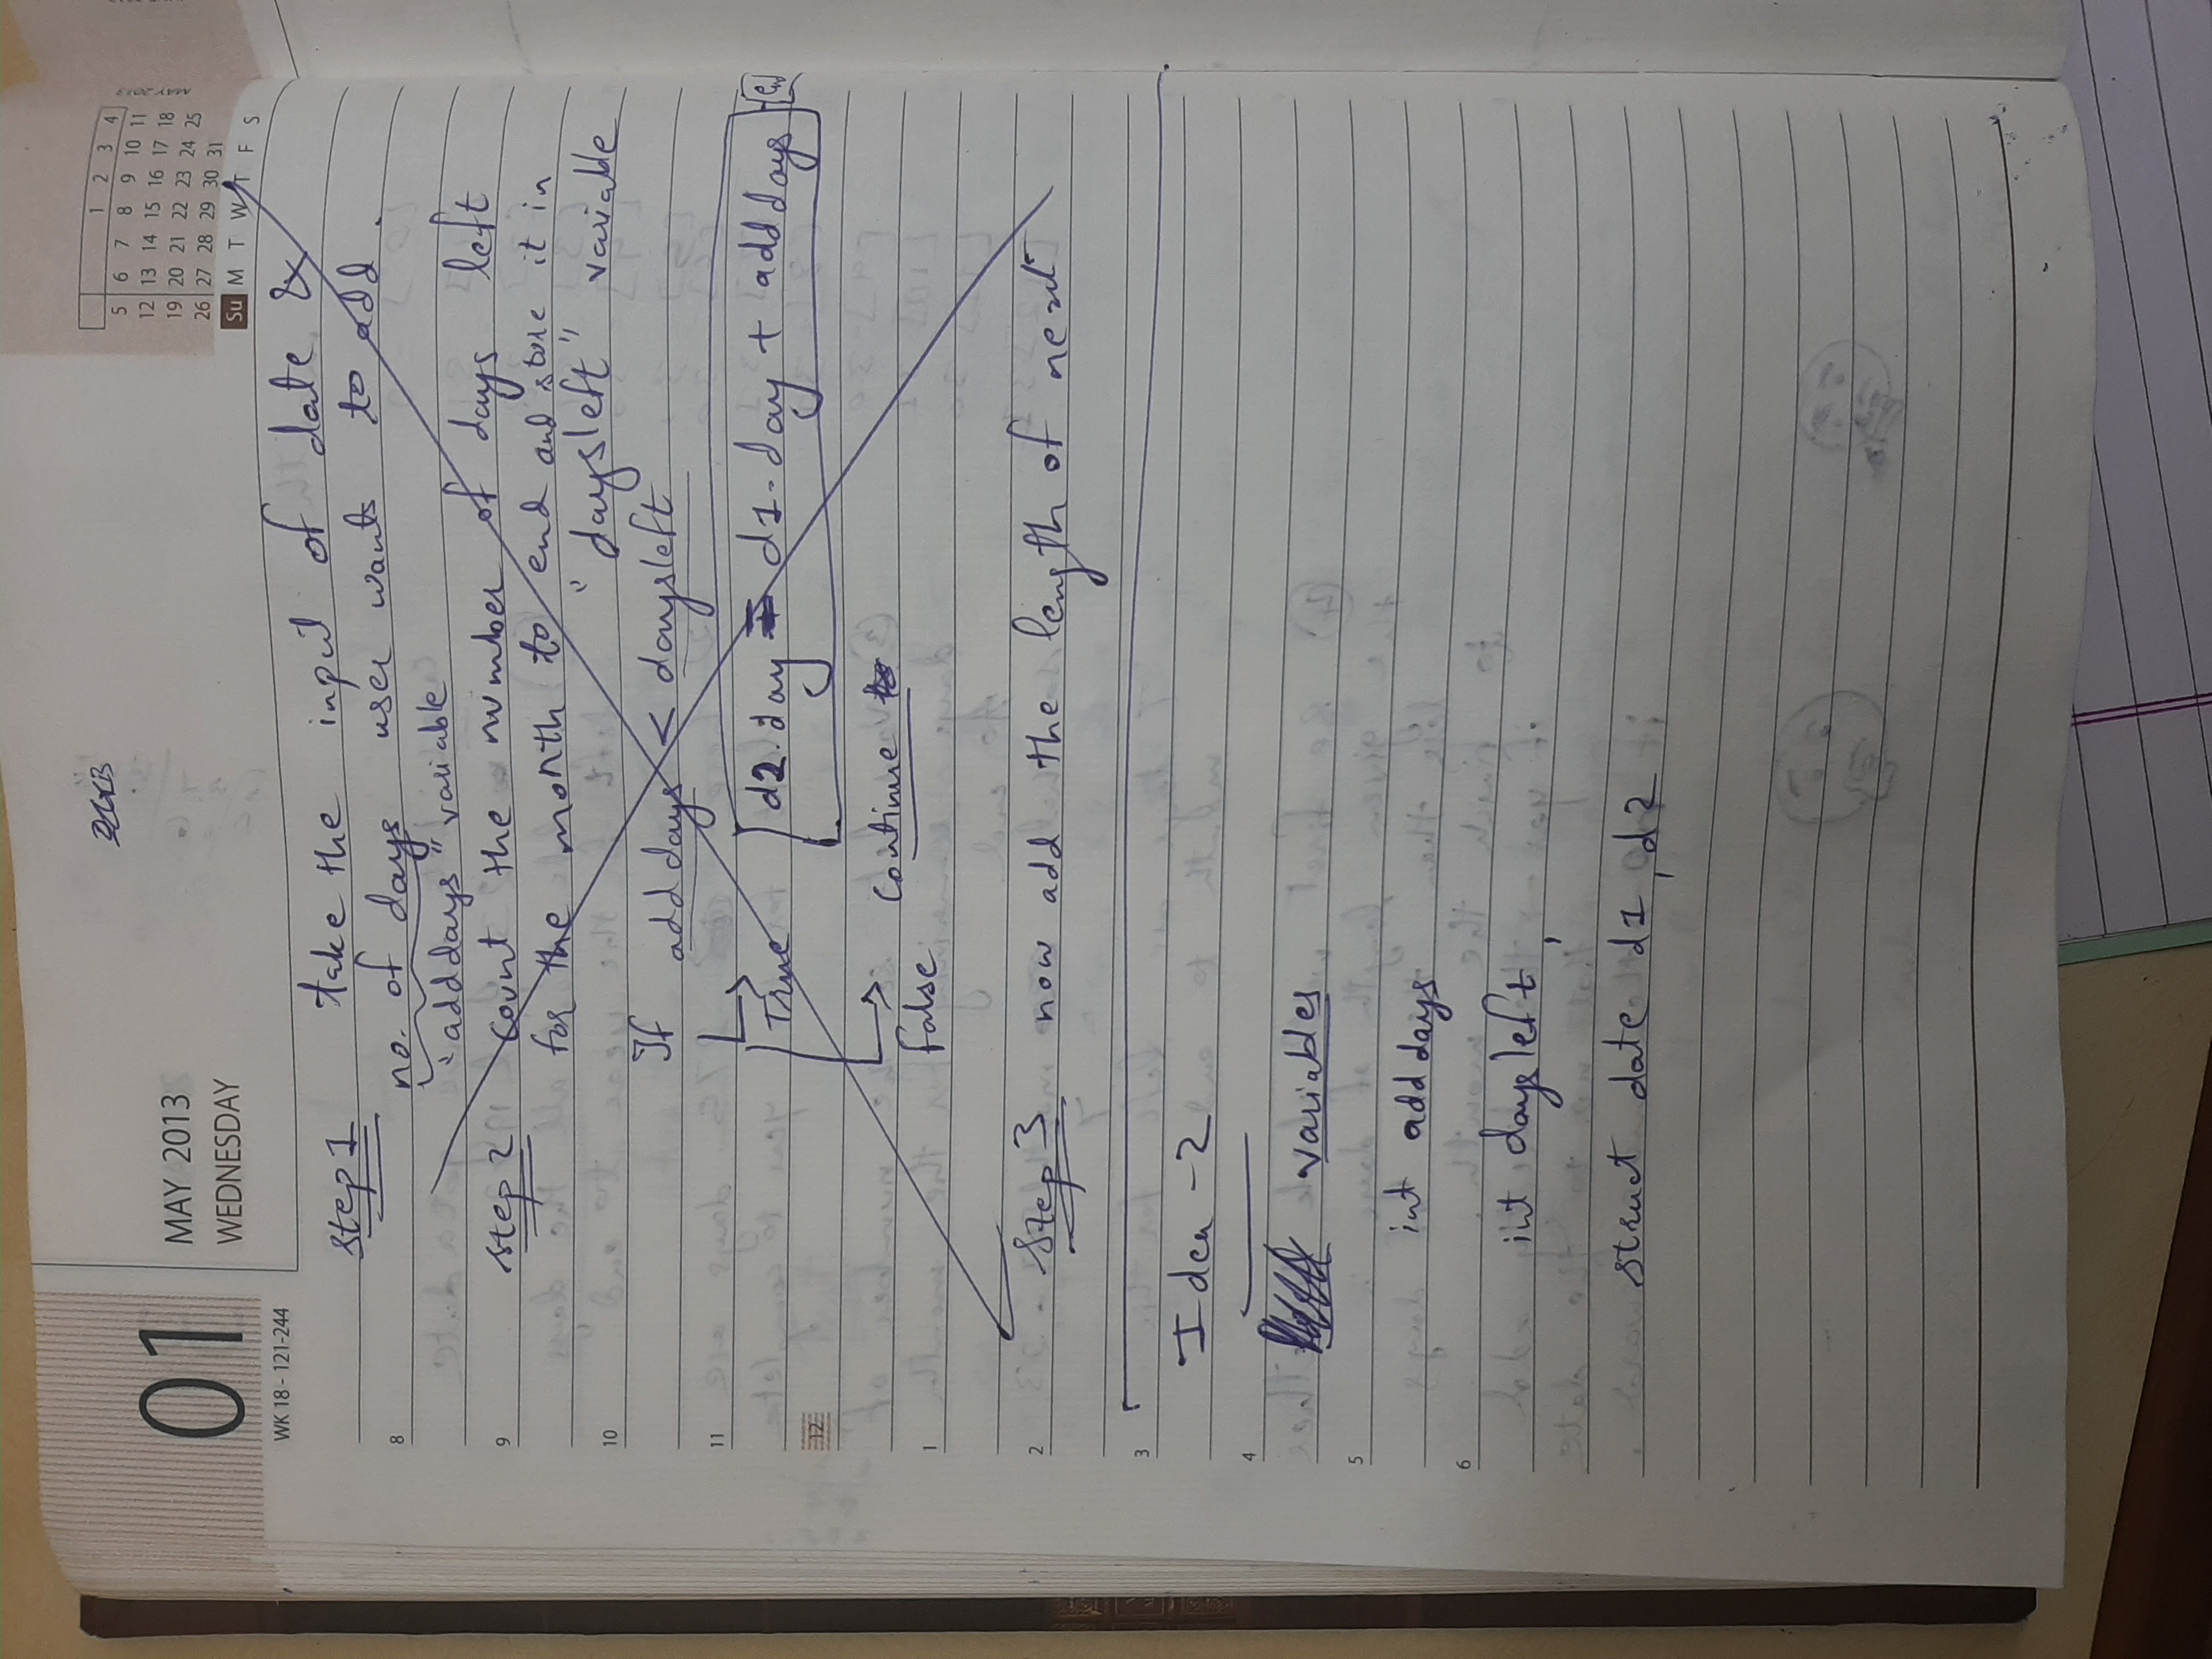 01
MAY 2013
WEDNESDAY
WK 18 - 121-244
1 2 3 4
5 6 7 8 9 10 11
12 13 14 15 16 17 18
19 20 21 22 23 24 25
26 27 28 29 30 31
Su M T W T F S
MAY 2013
step 1 take the input of date &
8 no. of days user wants to add.
"adddays" variable
9 step 2 count the number of days left
for the month to end and store it in
10 "daysleft" variable
If adddays < daysleft
11
True d2.day = d1.day + adddays End
12
continue
1 false
2 step 3 now add the length of next
3
Idea -2
4
variables
5
int adddays
6
int daysleft,
struct date d1, d2